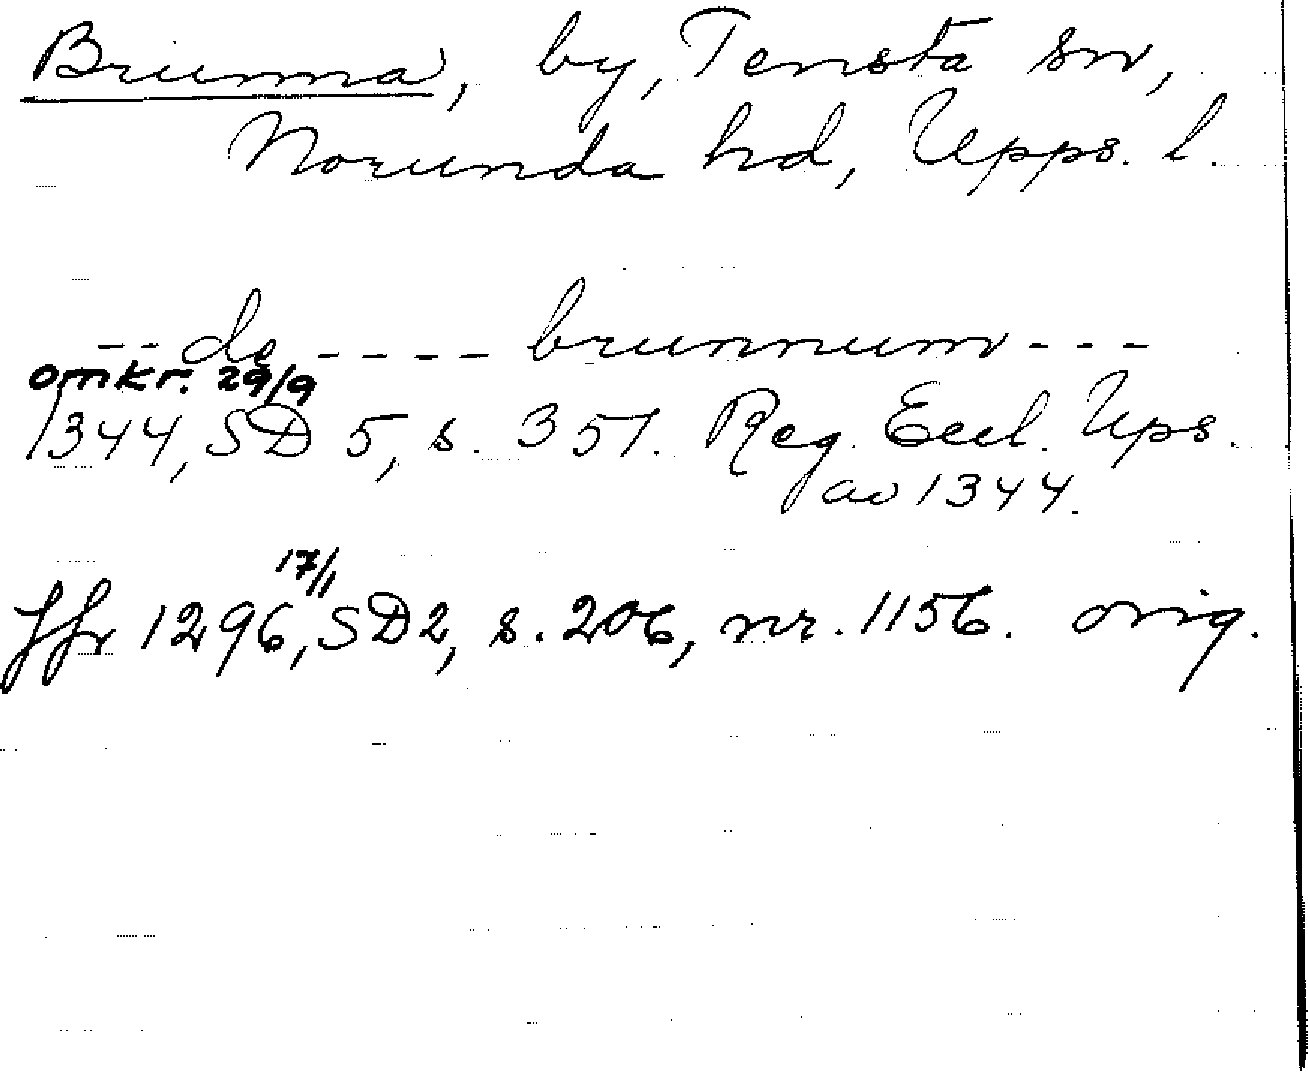 Brunna, by, Tensta sn,
Norunda hd, Upps. l.
-- de ---- brunnum ---
omkr. 29/9
1344, SD 5, s. 351. Reg. Eccl. Ups.
av 1344.
17/1
Jfr 1296, SD 2, s. 206, nr. 1156. orig.